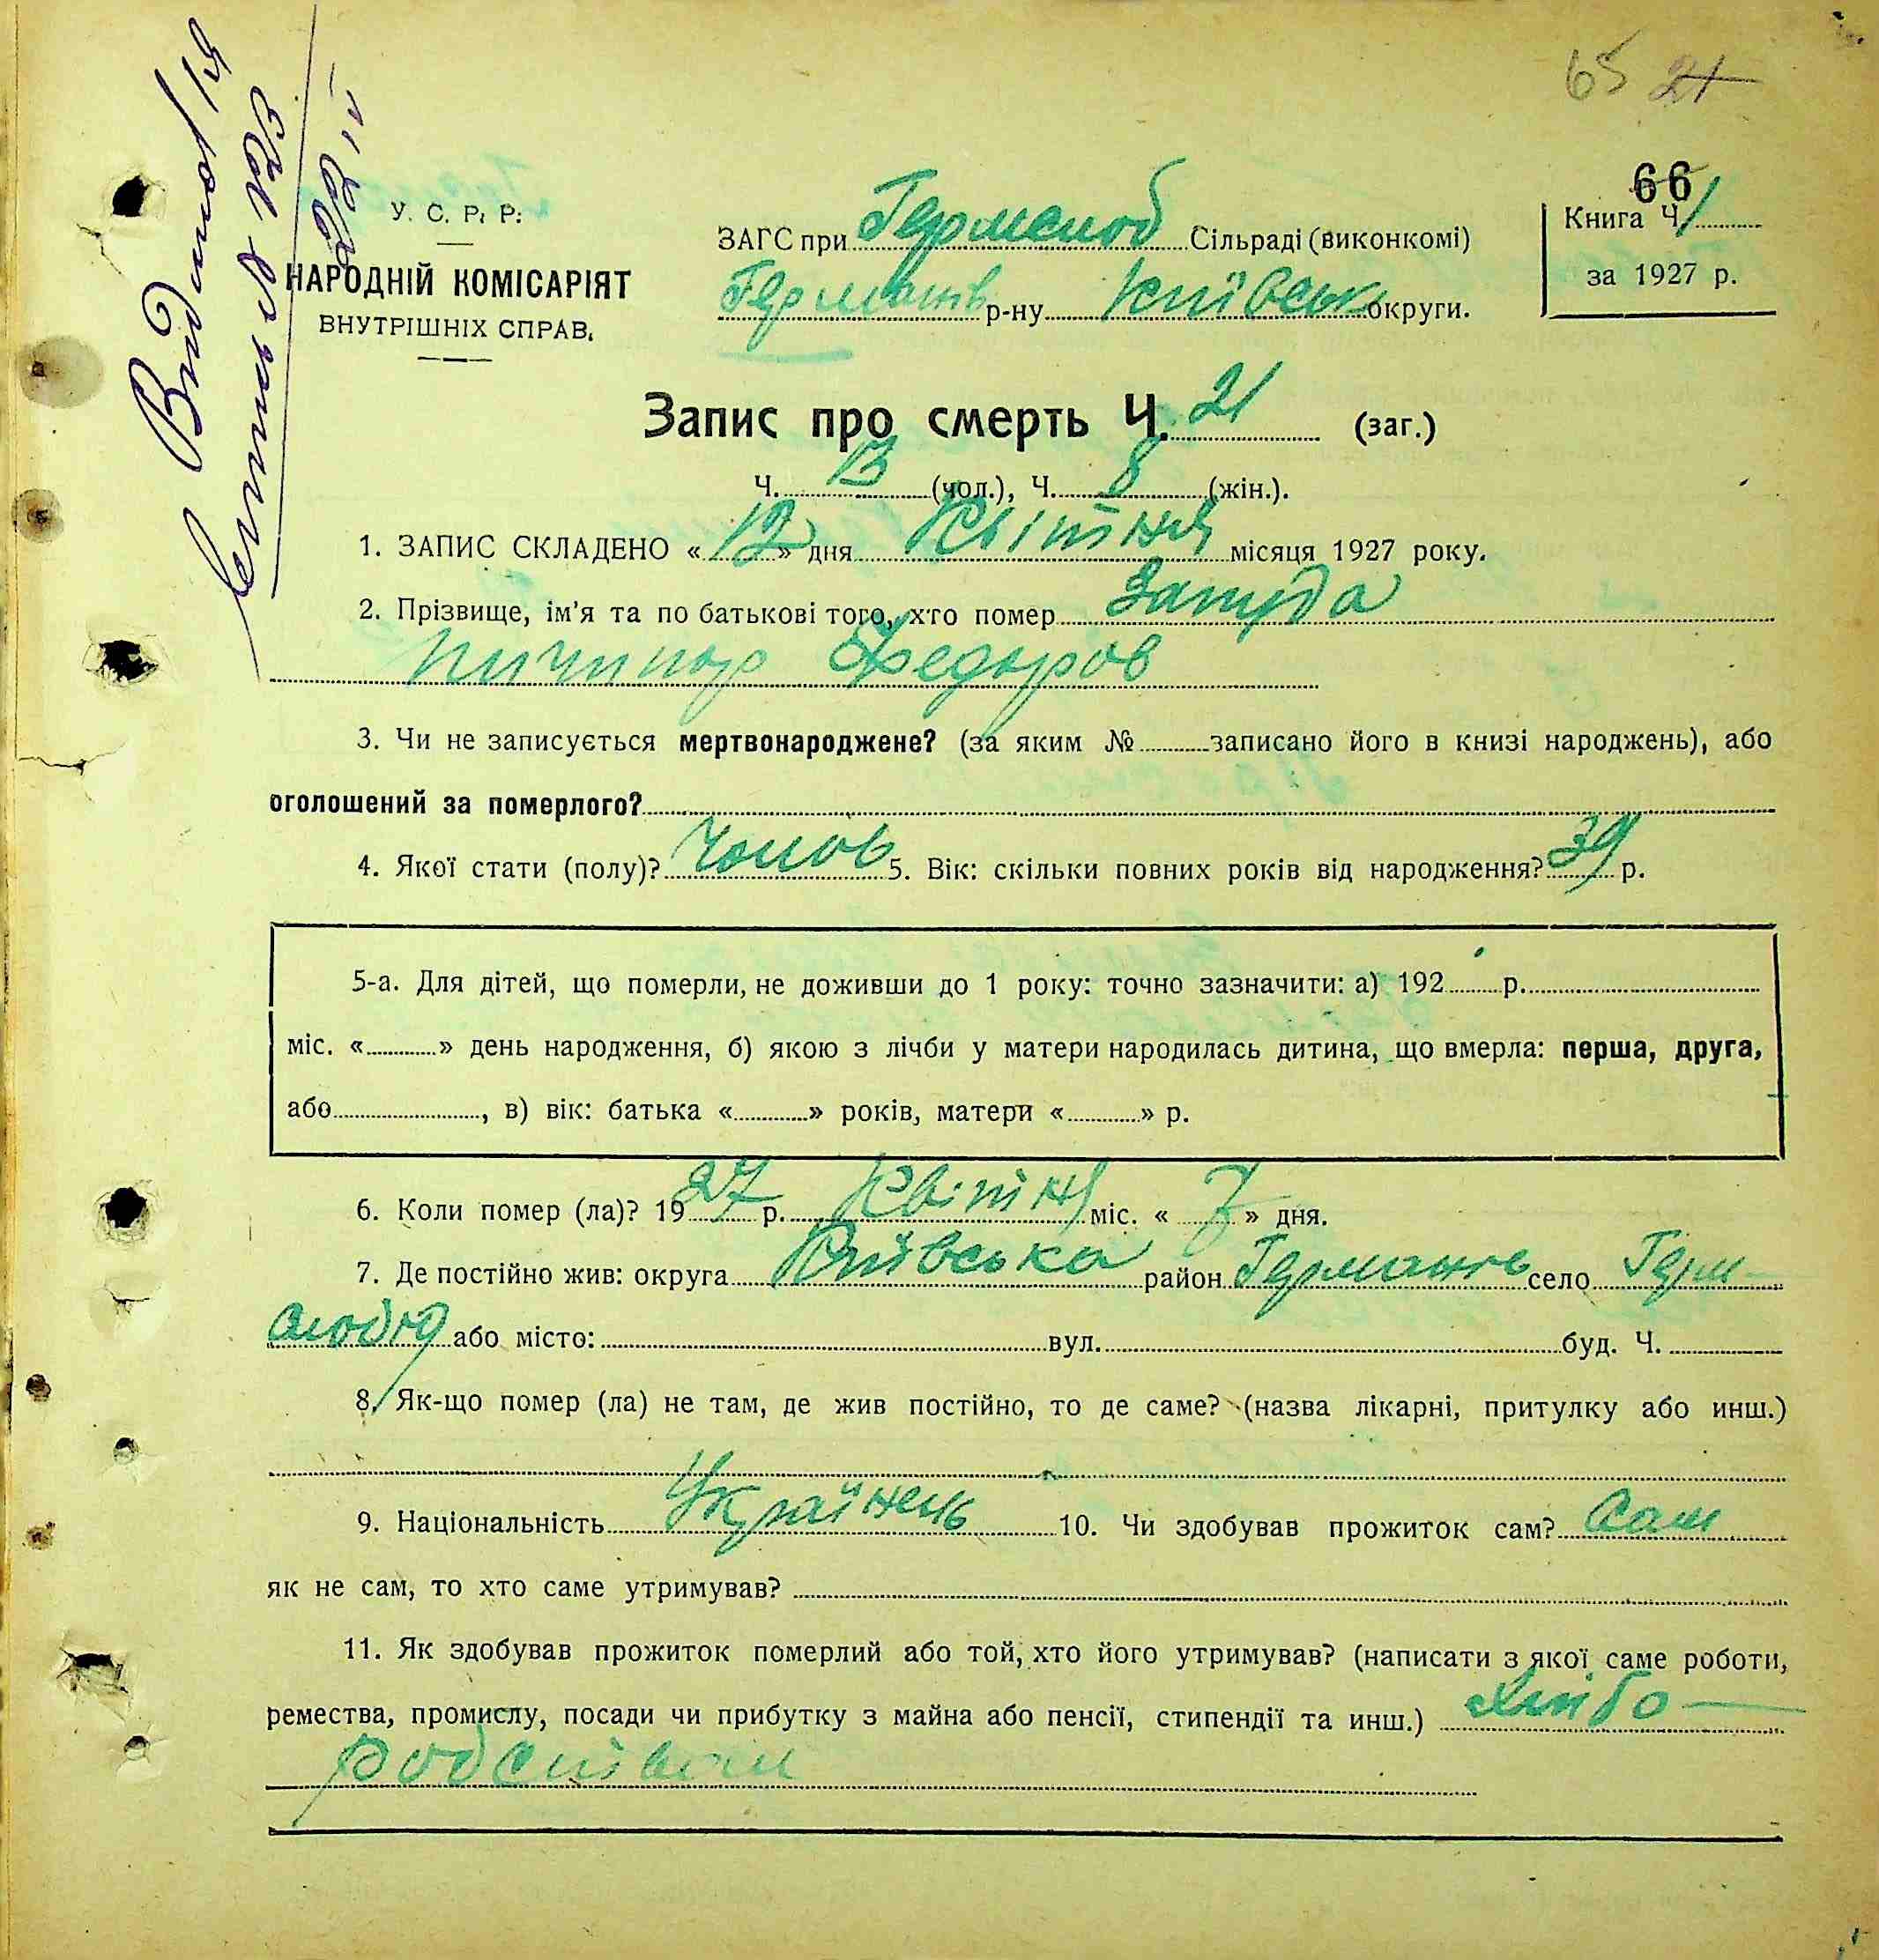 65 21
66
У. С. Р. Р.
НАРОДНІЙ КОМІСАРІЯТ
ВНУТРІШНІХ СПРАВ.
ЗАГС при Гермслоб Сільраді (виконкомі)
Германів р-ну Київськ округи.
Книга Ч. 1
за 1927 р.
Запис про смерть Ч. 21 (заг.)
Ч. 13 (чол.), Ч. 8 (жін.).
1. ЗАПИС СКЛАДЕНО « 12 » дня Квітня місяця 1927 року.
2. Прізвище, ім'я та по батькові того, хто помер
Ничипор Федоров
3. Чи не записується мертвонароджене? (за яким № записано його в книзі народжень), або
оголошений за померлого?
4. Якої стати (полу)? Чолов 5. Вік: скільки повних років від народження? 39 р.
5-а. Для дітей, що померли, не доживши до 1 року: точно зазначити: а) 192 р.
міс. « » день народження, б) якою з лічби у матери народилась дитина, що вмерла: перша, друга,
або , в) вік: батька « » років, матери « » р.
6. Коли помер (ла)? 1927 р. Квітня міс. « 7 » дня.
7. Де постійно жив: округа Київська район Германів село Герм-
слобід або місто: вул. буд. Ч.
8. Як-що помер (ла) не там, де жив постійно, то де саме? (назва лікарні, притулку або инш.)
9. Національність Українець 10. Чи здобував прожиток сам? Сам
як не сам, то хто саме утримував?
11. Як здобував прожиток померлий або той, хто його утримував? (написати з якої саме роботи,
ремества, промислу, посади чи прибутку з майна або пенсії, стипендії та инш.) Хлібо-
робством